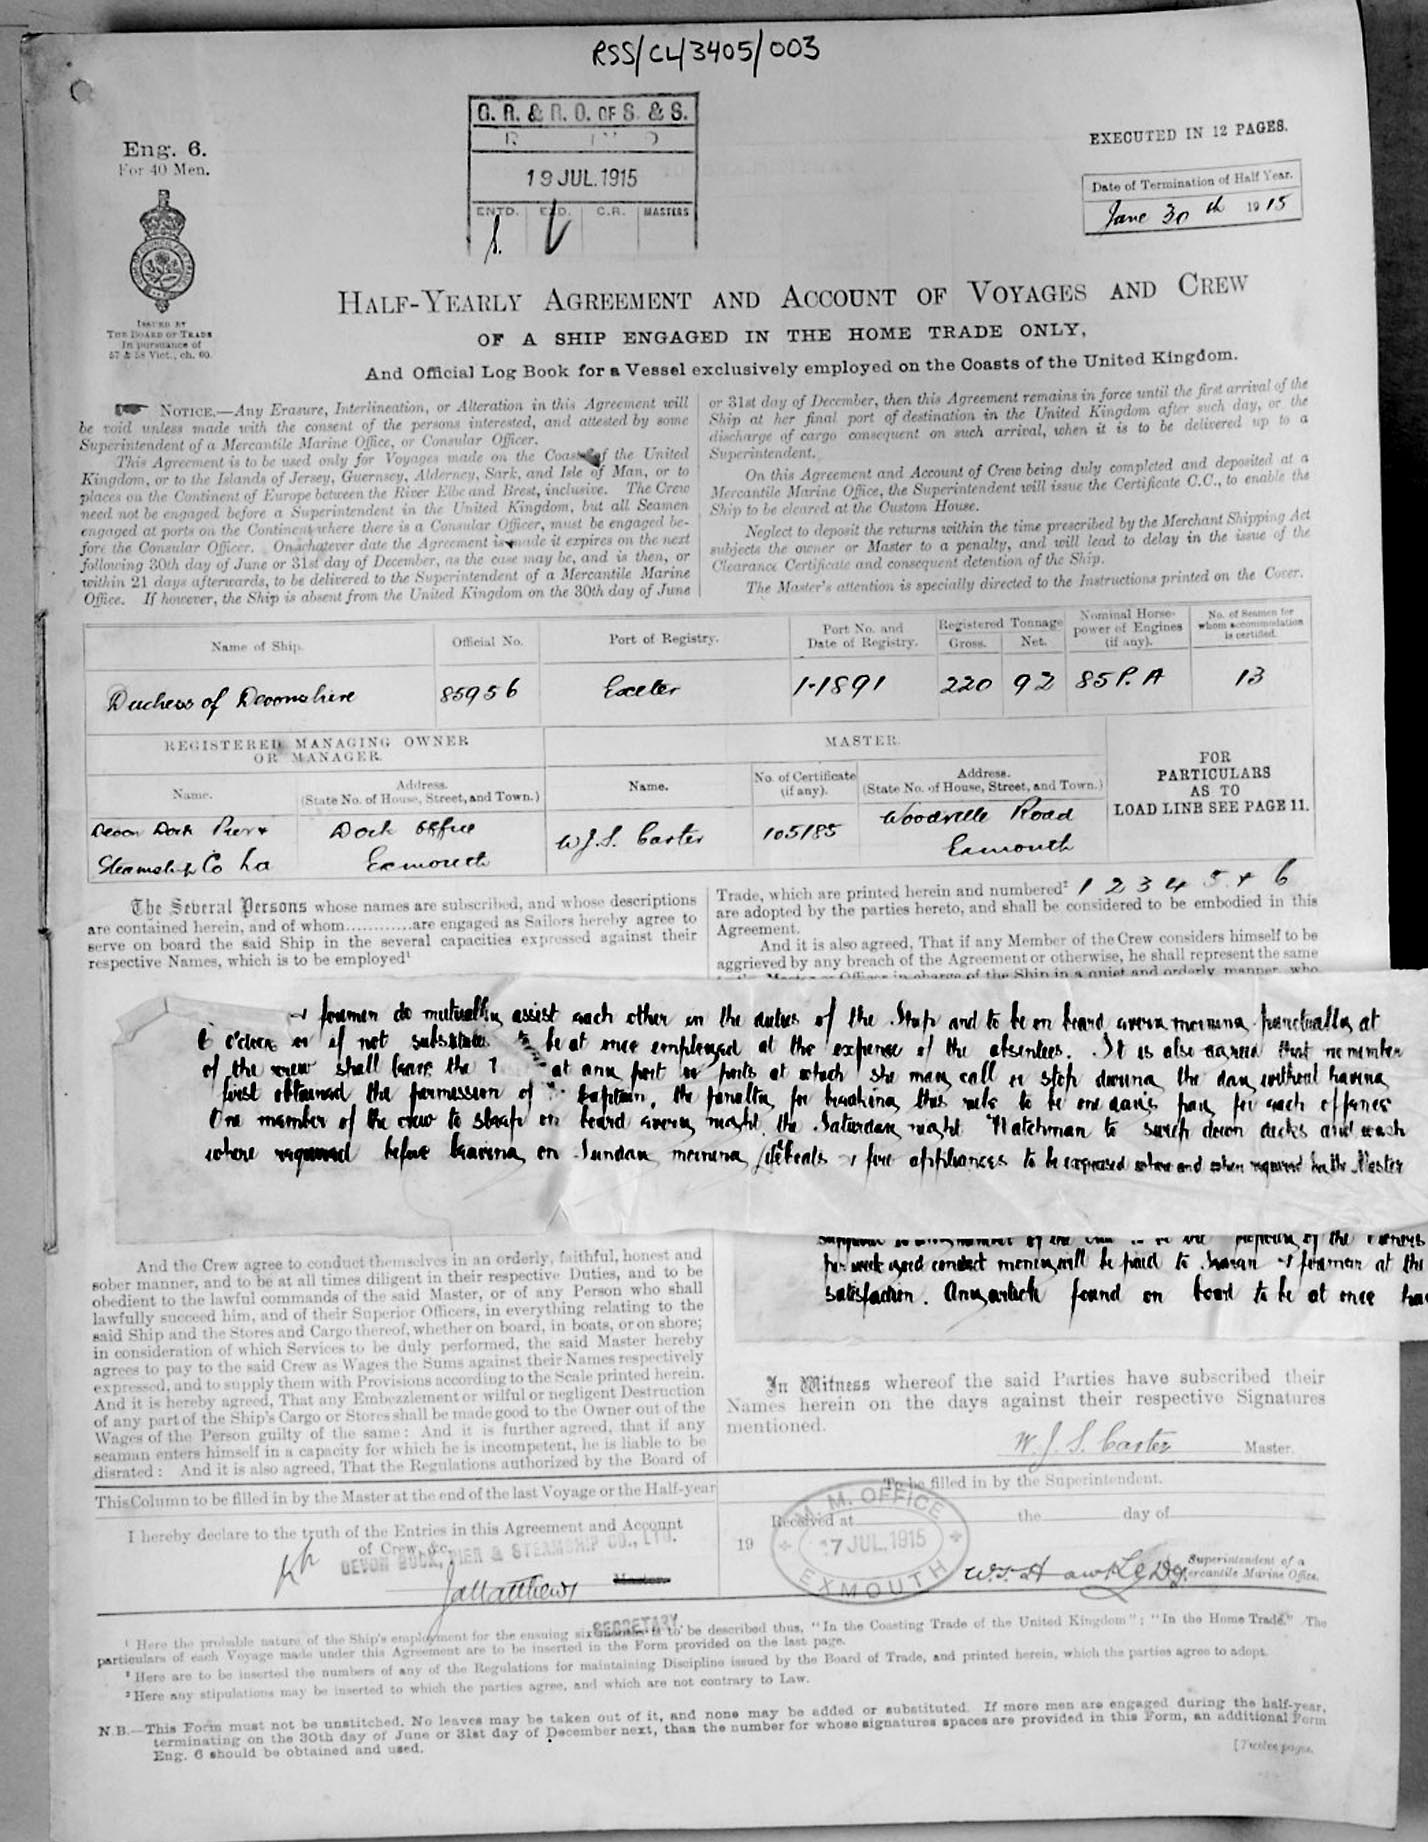 RSS/CL/3405/003
G. R. & R. O. OF S. & S.
19 JUL. 1915
ENTD. C.R. MASTERS
EXECUTED IN 12 PAGES.
Eng. 6.
For 40 Men.
Date of Termination of Half Year.
June 30th 1915
ISSUED BY
THE BOARD OF TRADE
In pursuance of
57 & 58 Vict., ch. 60.
HALF-YEARLY AGREEMENT AND ACCOUNT OF VOYAGES AND CREW
OF A SHIP ENGAGED IN THE HOME TRADE ONLY,
And Official Log Book for a Vessel exclusively employed on the Coasts of the United Kingdom.
NOTICE.—Any Erasure, Interlineation, or Alteration in this Agreement will
be void unless made with the consent of the persons interested, and attested by some
Superintendent of a Mercantile Marine Office, or Consular Officer.
This Agreement is to be used only for Voyages made on the Coast of the United
Kingdom, or to the Islands of Jersey, Guernsey, Alderney, Sark, and Isle of Man, or to
places on the Continent of Europe between the River Elbe and Brest, inclusive. The Crew
need not be engaged before a Superintendent in the United Kingdom, but all Seamen
engaged at ports on the Continent where there is a Consular Officer, must be engaged be-
fore the Consular Officer. On whatever date the Agreement is made it expires on the next
following 30th day of June or 31st day of December, as the case may be, and is then, or
within 21 days afterwards, to be delivered to the Superintendent of a Mercantile Marine
Office. If however, the Ship is absent from the United Kingdom on the 30th day of June
or 31st day of December, then this Agreement remains in force until the first arrival of the
Ship at her final port of destination in the United Kingdom after such day, or the
discharge of cargo consequent on such arrival, when it is to be delivered up to a
Superintendent.
On this Agreement and Account of Crew being duly completed and deposited at a
Mercantile Marine Office, the Superintendent will issue the Certificate C.C., to enable the
Ship to be cleared at the Custom House.
Neglect to deposit the returns within the time prescribed by the Merchant Shipping Act
subjects the owner or Master to a penalty, and will lead to delay in the issue of the
Clearance Certificate and consequent detention of the Ship.
The Master's attention is specially directed to the Instructions printed on the Cover.
Name of Ship. Official No. Port of Registry. Port No. and Date of Registry. Registered Tonnage Gross. Net. Nominal Horse-power of Engines (if any). No. of Seamen for whom accommodation is certified.
Duchess of Devonshire 85956 Exeter 1-1891 220 92 85 P. A 13
REGISTERED MANAGING OWNER
OR MANAGER.
MASTER.
Name. Address. (State No. of House, Street, and Town.) Name. No. of Certificate (if any). Address. (State No. of House, Street, and Town.)
FOR
PARTICULARS
AS TO
LOAD LINE SEE PAGE 11.
Devon Dock Pier & Dock Office W. J. S. Carter 105185 Woodville Road
Steamship Co Ld Exmouth Exmouth
The Several Persons whose names are subscribed, and whose descriptions
are contained herein, and of whom............are engaged as Sailors hereby agree to
serve on board the said Ship in the several capacities expressed against their
respective Names, which is to be employed¹
Trade, which are printed herein and numbered² 1 2 3 4 5 & 6
are adopted by the parties hereto, and shall be considered to be embodied in this
Agreement.
And it is also agreed, That if any Member of the Crew considers himself to be
aggrieved by any breach of the Agreement or otherwise, he shall represent the same
to the Master or Officer in charge of the Ship in a quiet and orderly manner, who
& firemen do mutually assist each other in the duties of the Ship and to be on board every morning punctually at
6 o'clock or if not substitutes to be at once employed at the expense of the absentees. It is also agreed that no member
of the crew shall leave the at any port or ports at which she may call or stop during the day without having
first obtained the permission of Captain, the penalty for breaking this rule to be one day's pay for each offence
One member of the crew to sleep on board every night, the Saturday night Watchman to sweep down decks and wash
where required before leaving on Sunday morning, & fire appliances to be exercised when and when required by the Master
of the crew to be the property of the Owners
per week good conduct money will be paid to Seaman & firemen at the
satisfaction. Any article found on board to be at once
And the Crew agree to conduct themselves in an orderly, faithful, honest and
sober manner, and to be at all times diligent in their respective Duties, and to be
obedient to the lawful commands of the said Master, or of any Person who shall
lawfully succeed him, and of their Superior Officers, in everything relating to the
said Ship and the Stores and Cargo thereof, whether on board, in boats, or on shore;
in consideration of which Services to be duly performed, the said Master hereby
agrees to pay to the said Crew as Wages the Sums against their Names respectively
expressed, and to supply them with Provisions according to the Scale printed herein.
And it is hereby agreed, That any Embezzlement or wilful or negligent Destruction
of any part of the Ship's Cargo or Stores shall be made good to the Owner out of the
Wages of the Person guilty of the same: And it is further agreed, that if any
seaman enters himself in a capacity for which he is incompetent, he is liable to be
disrated: And it is also agreed, That the Regulations authorized by the Board of
In Witness whereof the said Parties have subscribed their
Names herein on the days against their respective Signatures
mentioned.
W. J. S. Carter Master.
This Column to be filled in by the Master at the end of the last Voyage or the Half-year
I hereby declare to the truth of the Entries in this Agreement and Account
of Crew, &c.
DEVON DOCK, PIER & STEAMSHIP CO., LTD.
Master.
SECRETARY.
To be filled in by the Superintendent.
Received at the day of
19
M. M. OFFICE
17 JUL. 1915
EXMOUTH
Superintendent of a
Mercantile Marine Office.
¹ Here the probable nature of the Ship's employment for the ensuing six months is to be described thus, "In the Coasting Trade of the United Kingdom"; "In the Home Trade." The
particulars of each Voyage made under this Agreement are to be inserted in the Form provided on the last page.
² Here are to be inserted the numbers of any of the Regulations for maintaining Discipline issued by the Board of Trade, and printed herein, which the parties agree to adopt.
³ Here any stipulations may be inserted to which the parties agree, and which are not contrary to Law.
N.B.—This Form must not be unstitched. No leaves may be taken out of it, and none may be added or substituted. If more men are engaged during the half-year,
terminating on the 30th day of June or 31st day of December next, than the number for whose signatures spaces are provided in this Form, an additional Form
Eng. 6 should be obtained and used.
[Twelve pages.